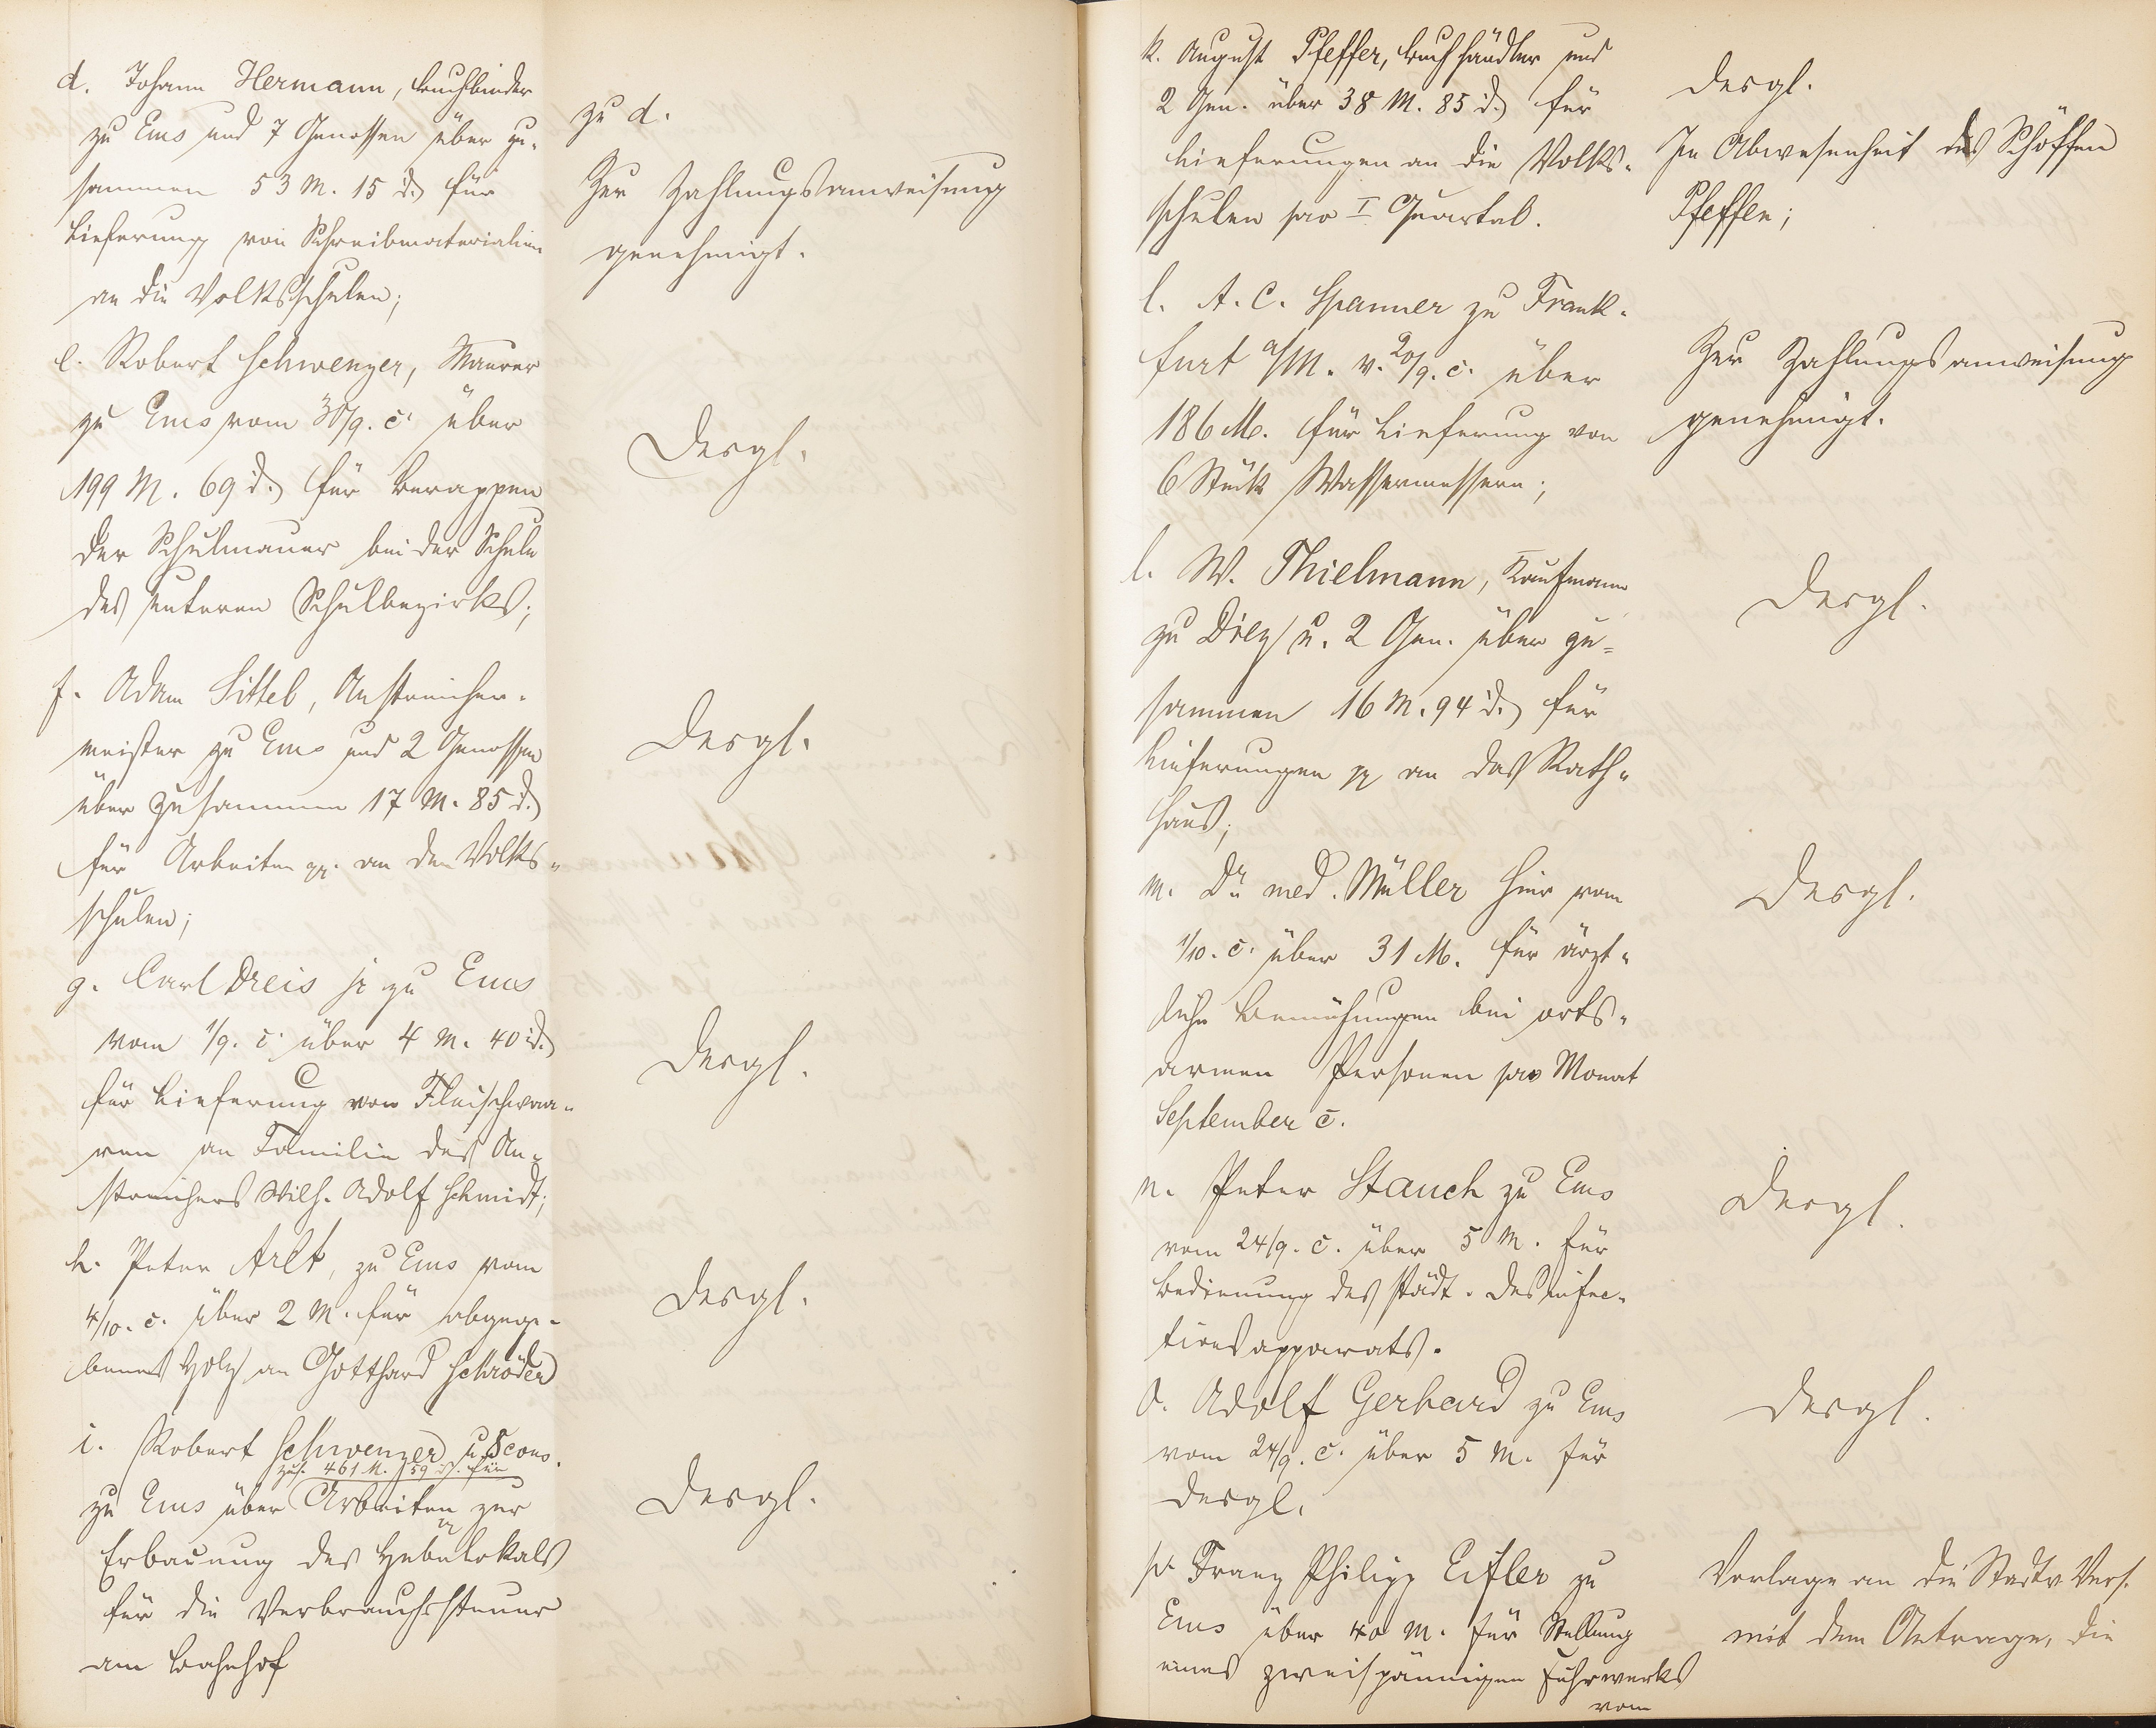 d. Johann Hermann, Buchbinder
zu Ems und 7 Genossen über zu-
sammen 53 M. 15 d. für
Lieferung von Schreibmaterialien
an die Volksschulen;
zu d.
Zur Zahlungsanweisung
genehmigt.
e. Robert Schwenzer, Maurer
zu Ems vom 30/9. c. über
199 M. 69 d. für Berappen
der Schulmauer bei der Schule
des unteren Schulbezirks;
Desgl.
f. Adam Sittel, Anstreicher-
meister zu Ems und 2 Genossen
über zusammen 17 M. 85 d.
für Arbeiten pp. an den Volks-
schulen;
Desgl.
g. Carl Dreis jr zu Ems
vom 1/9. c. über 4 M. 40 d.
für Lieferung von Fleischwaa-
ren an Familie des An-
streichers Wilh. Adolf Schmidt;
Desgl.
h. Peter Arlt, zu Ems vom
4/10. c. über 2 M. für abgege-
benes Holz an Gotthard Schröder
Desgl.
i. Robert Schwenzer u. 8 cons.
zus. 461 M. 59 d. für
zu Ems über Arbeiten pp zur
Erbauung des Hebelokals
für die Verbrauchssteuer
am Bahnhof
Desgl.
k. August Pfeffer, Buchhändler und
2 Gen. über 38 M. 85 d. für
Lieferungen an die Volks-
schulen pro I Quartal.
Desgl.
In Abwesenheit des Schöffen
Pfeffer;
l. A. C. Spanner zu Frank-
furt a/M. v. 20/9. c. über
186 M. für Lieferung von
6 Stück Wassermessern;
Zur Zahlungsanweisung
genehmigt.
l. W. Thielmann, Kaufmann
zu Diez u. 2 Gen. über zu-
sammen 16 M. 94 d. für
Lieferungen pp an das Rath-
haus;
Desgl.
m. Dr. med. Müller hier vom
1/10. c. über 31 M. für ärzt-
liche Bemühungen bei orts-
armen Personen pro Monat
September c.
Desgl.
n. Peter Stauch zu Ems
vom 24/9. c. über 5 M. für
Bedienung des städt. Desinfec-
tionsapparats.
Desgl.
o. Adolf Gerhard zu Ems
vom 24/9. c. über 5 M. für
Desgl.
Desgl.
p. Franz Philipp Eifler zu
Ems über 40 M. für Stellung
eines zweispännigen Fuhrwerks
vom
Vorlage an die Stadtv. Vers.
mit dem Antrage, die